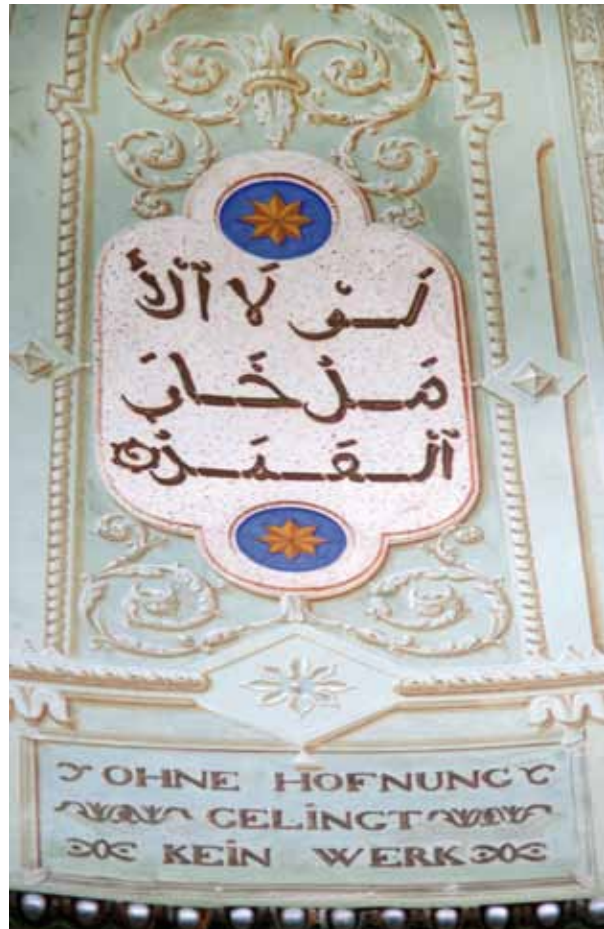 لَوْ لَا ٱلأَ
مَلُ خَابَ
ٱلْعَمَلُ
OHNE HOFNUNG
GELiNGT
KEiN WERK